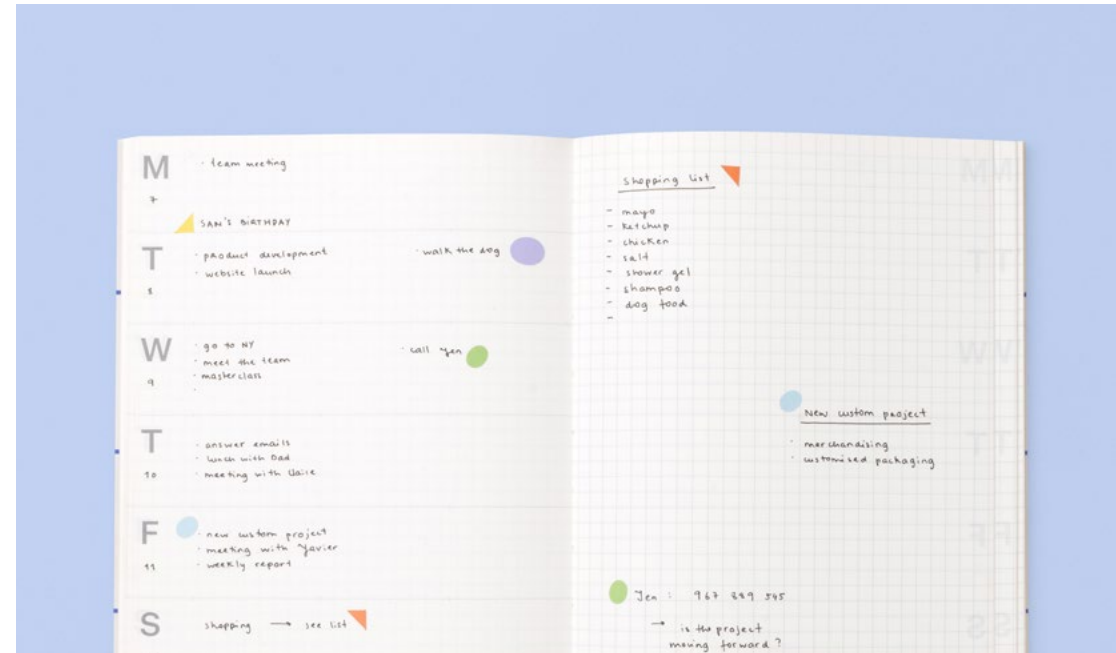 M
7
· team meeting
SAM'S BIRTHDAY
T
8
· product development
· website launch
· walk the dog
W
9
· go to NY
· meet the team
· masterclass
·
· call Yen
T
10
· answer emails
· lunch with Dad
· meeting with Claire
F
11
· new custom project
· meeting with Yavier
· weekly report
S
shopping → see list
Shopping list
- mayo
- ketchup
- chicken
- salt
- shower gel
- shampoo
- dog food
-
New custom project
· merchandising
· customised packaging
Yen : 967 889 545
→ is the project
moving forward?